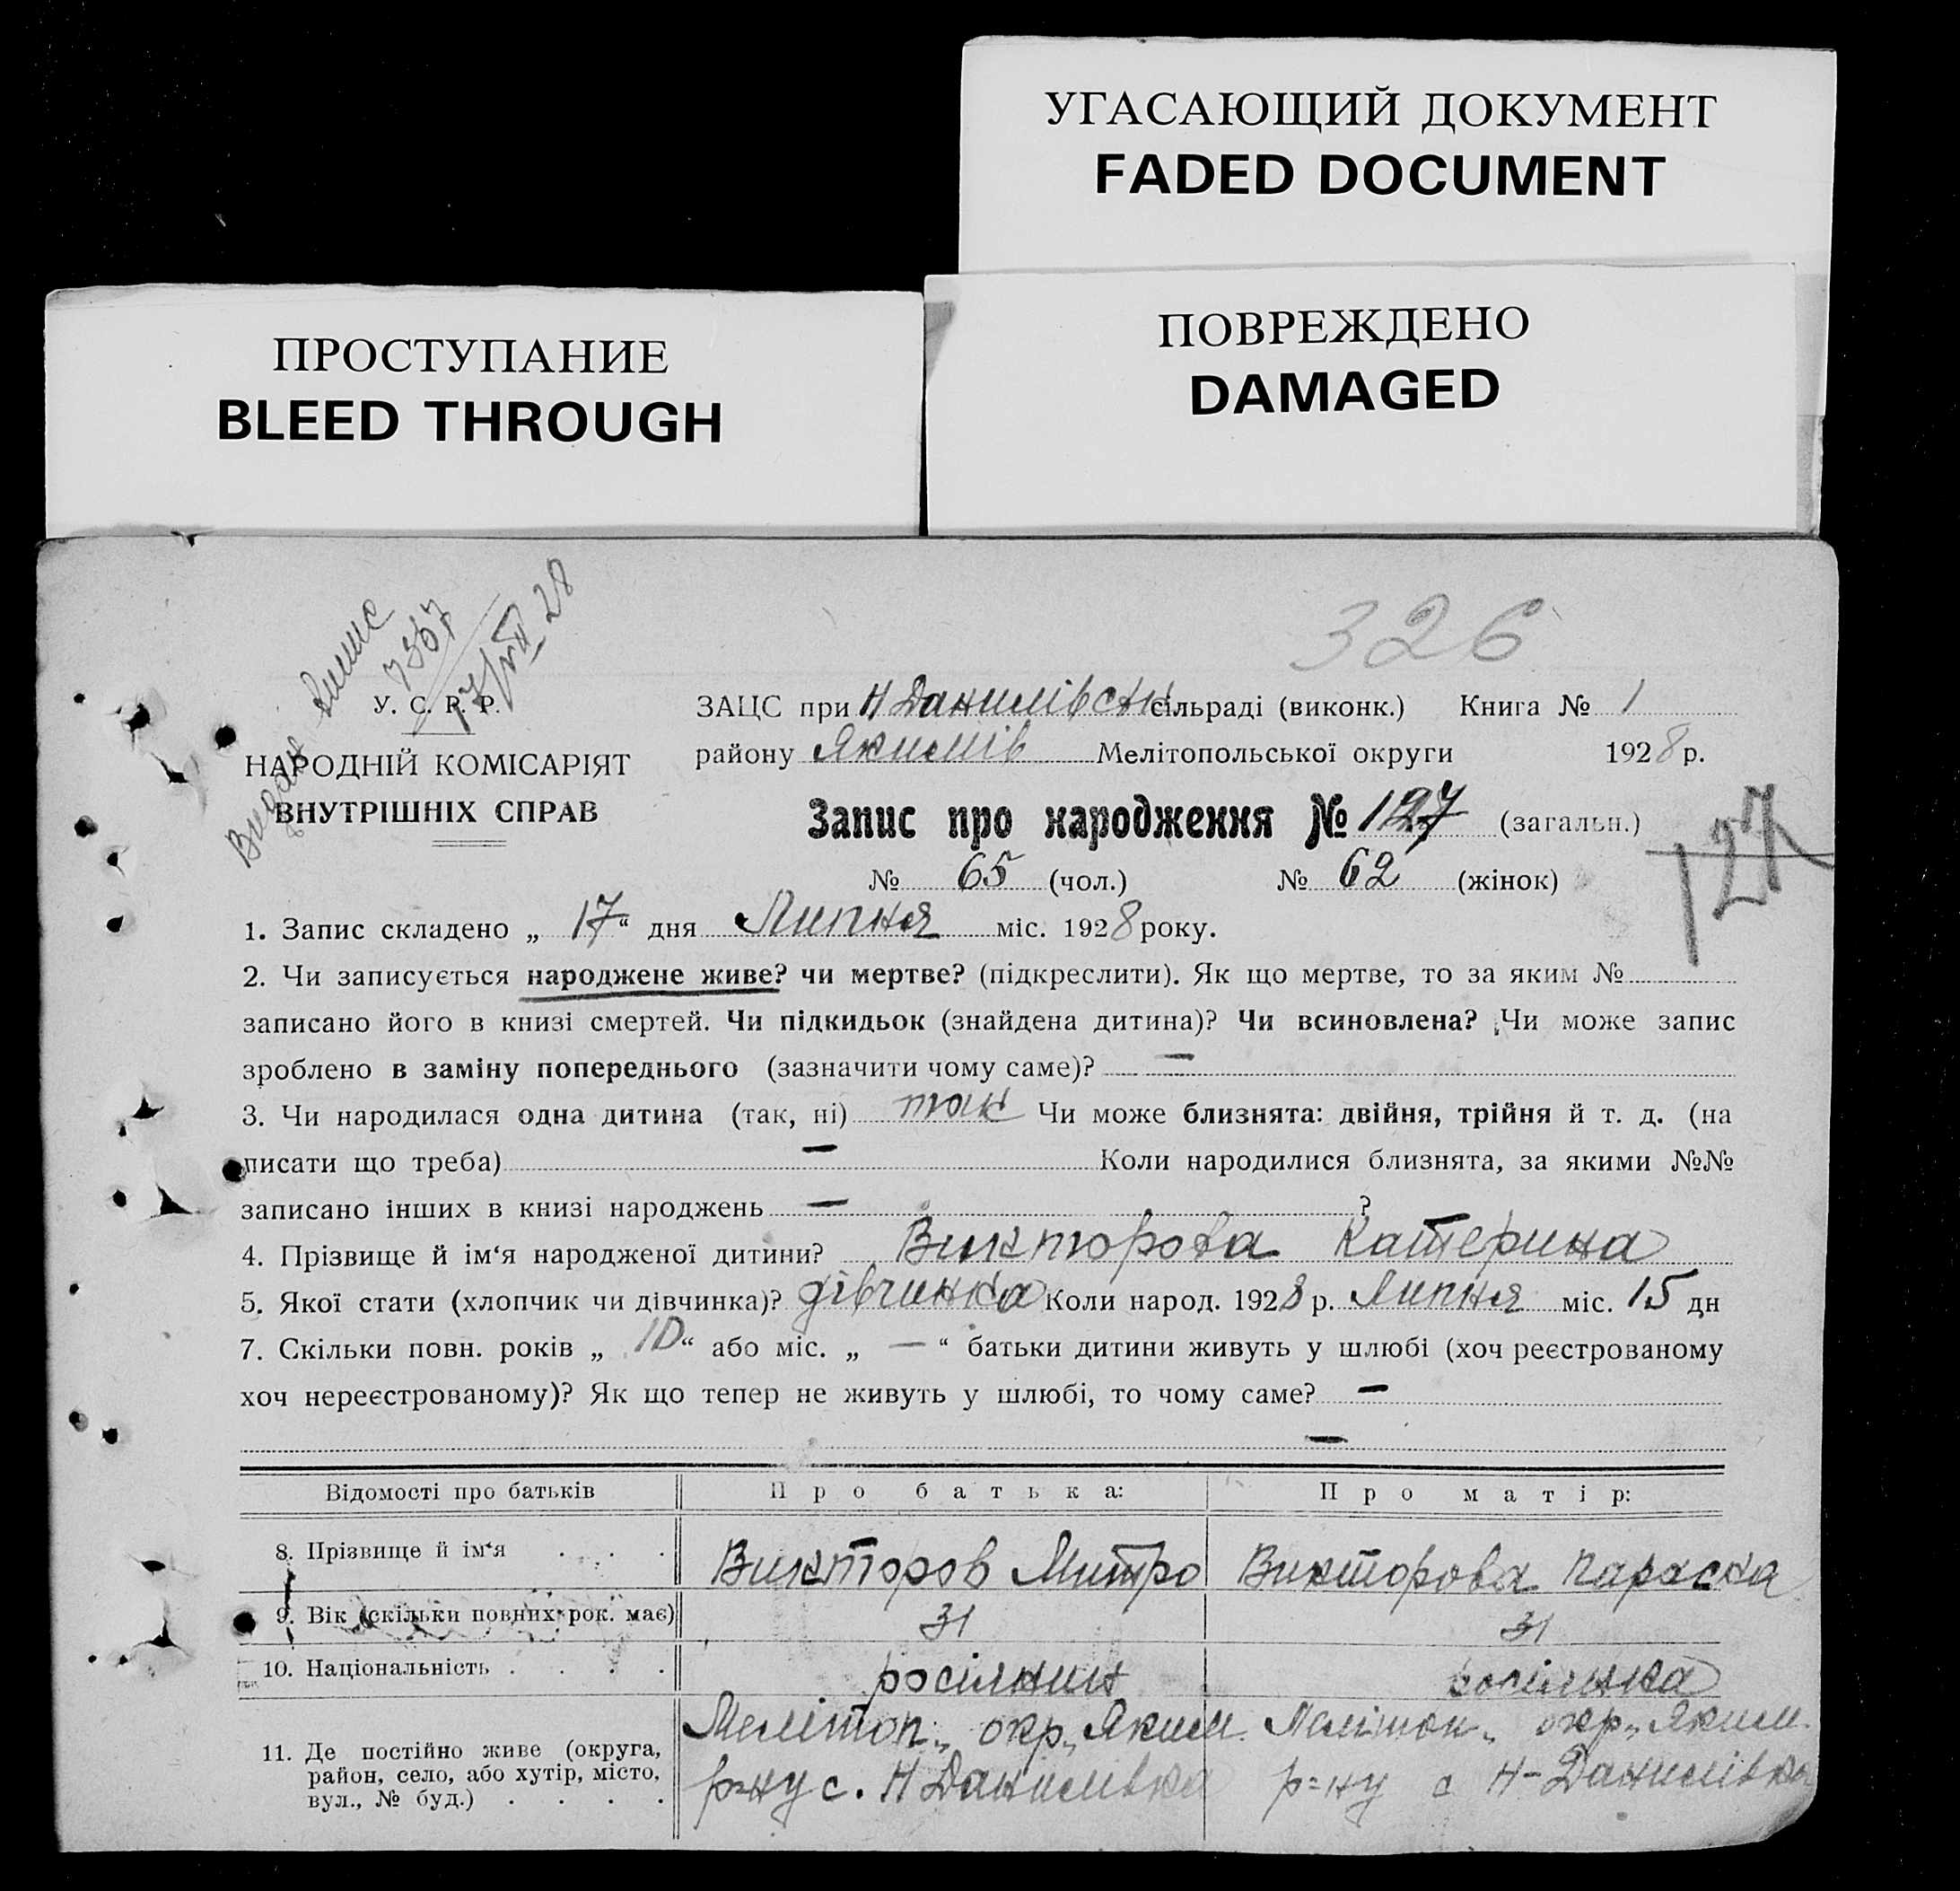 УГАСАЮЩИЙ ДОКУМЕНТ
FADED DOCUMENT
ПРОСТУПАНИЕ
BLEED THROUGH
ПОВРЕЖДЕНО
DAMAGED
326
Видан Випис
7367
17/VII 28
У. С. Р. Р.
НАРОДНІЙ КОМІСАРІЯТ
ВНУТРІШНІХ СПРАВ
ЗАЦС при Н Данилівськ сільраді (виконк.) Книга № 1
району Якимів Мелітопольської округи 1928 р.
Запис про народження № 127 (загальн.)
127
№ 65 (чол.) № 62 (жінок)
1. Запис складено „ 17 “ дня Липня міс. 1928 року.
2. Чи записується народжене живе? чи мертве? (підкреслити). Як що мертве, то за яким №
записано його в книзі смертей. Чи підкидьок (знайдена дитина)? Чи всиновлена? Чи може запис
зроблено в заміну попереднього (зазначити чому саме)? —
3. Чи народилася одна дитина (так, ні) так Чи може близнята: двійня, трійня й т. д. (на
писати що треба) — Коли народилися близнята, за якими №№
записано інших в книзі народжень — ?
4. Прізвище й ім‘я народженої дитини? Викторова Катерина
5. Якої стати (хлопчик чи дівчинка)? дівчинка Коли народ. 1928 р. Липня міс. 15 дн
7. Скільки повн. років „ 10 “ або міс. „ — “ батьки дитини живуть у шлюбі (хоч реєстрованому
хоч нереєстрованому)? Як що тепер не живуть у шлюбі, то чому саме? —
—
Відомості про батьків Про батька: Про матір:
8. Прізвище й ім‘я . . . . Викторов Митро Викторова Параска
9. Вік (скільки повних рок. має) 31 31
10. Національність . . . . росіянин росіянка
11. Де постійно живе (округа, Меліτοп„ окр„ Яким. Меліτοп„ окр„ Яким.
район, село, або хутір, місто, р-ну с. Н Данилівка р=ну с Н-Данилівка
вул., № буд.) . . . .